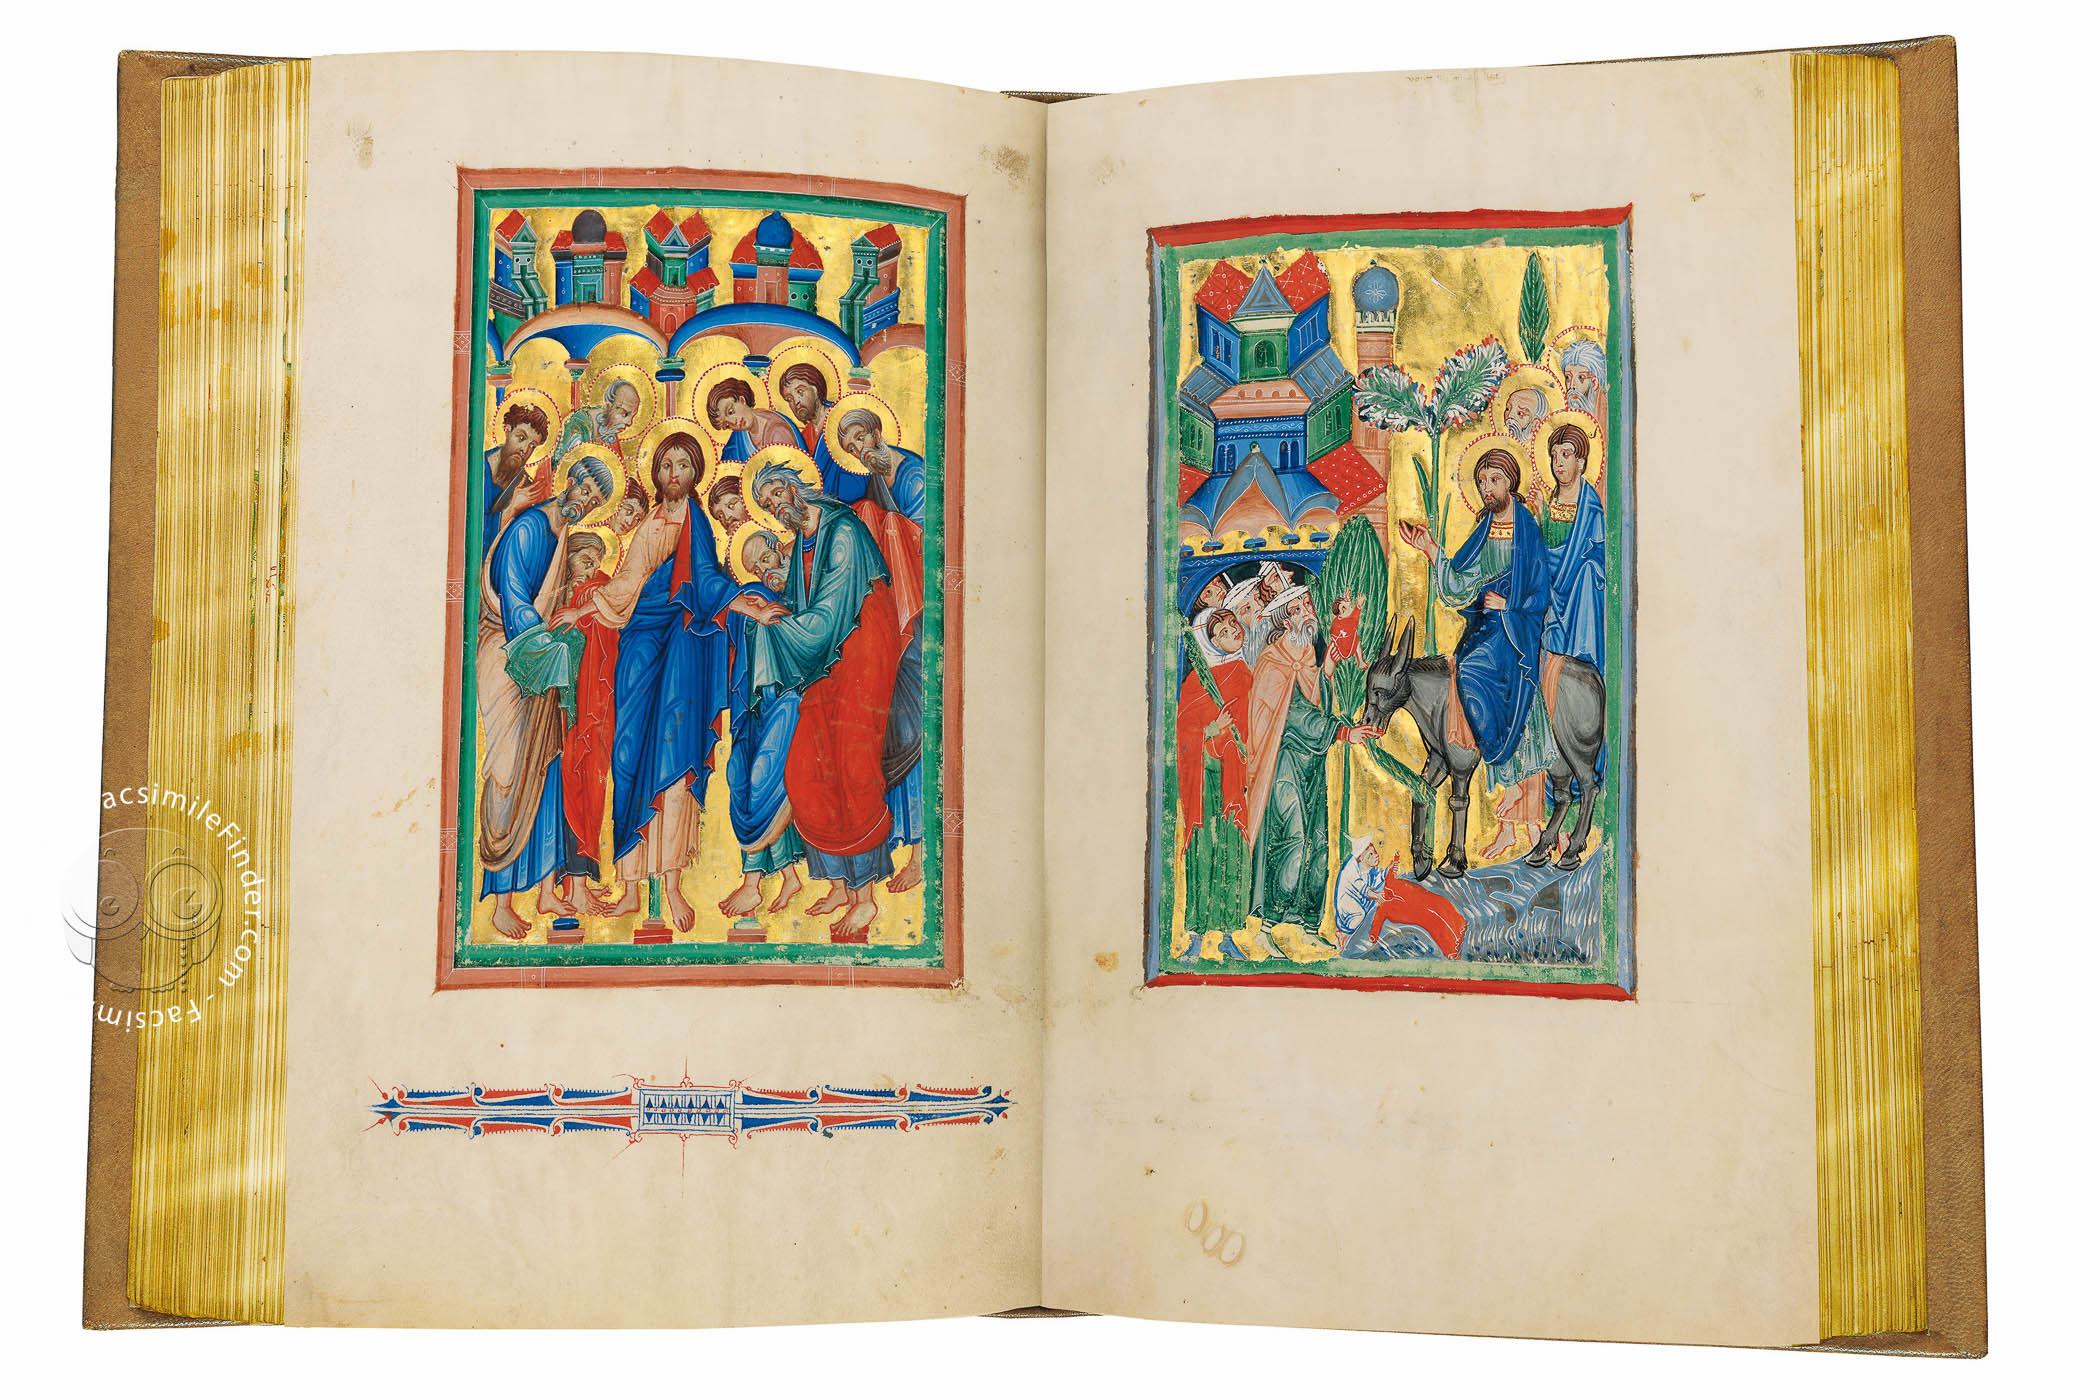 acsimileFinder.com - Facsim